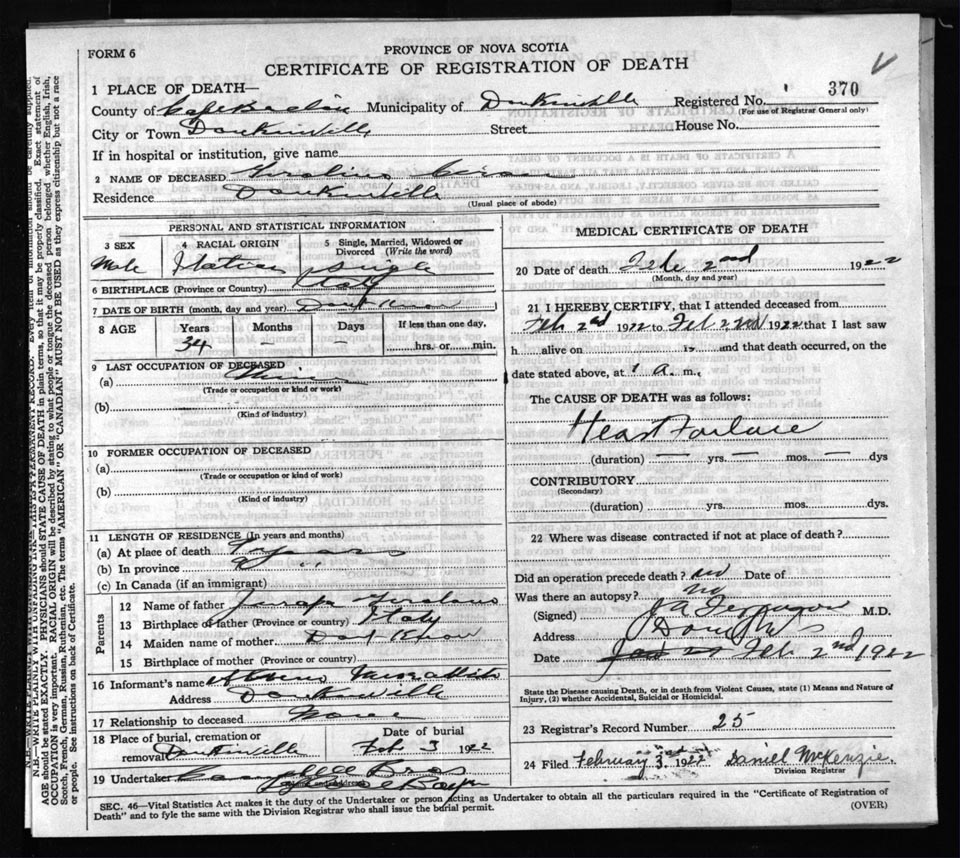 FORM 6
PROVINCE OF NOVA SCOTIA
CERTIFICATE OF REGISTRATION OF DEATH
1 PLACE OF DEATH—
370
County of Cape Breton Municipality of Donkinville Registered No.
(For use of Registrar General only)
City or Town Donkinville Street House No.
If in hospital or institution, give name
2 NAME OF DECEASED
Residence Donkinville
(Usual place of abode)
PERSONAL AND STATISTICAL INFORMATION
3 SEX 4 RACIAL ORIGIN 5 Single, Married, Widowed or Divorced (Write the word)
Male Italian Single
6 BIRTHPLACE (Province or Country) Italy
7 DATE OF BIRTH (month, day and year) Dont Know
8 AGE Years Months Days If less than one day,
34 – – hrs. or min.
9 LAST OCCUPATION OF DECEASED
(a)
(Trade or occupation or kind or work)
(b)
(Kind of industry)
10 FORMER OCCUPATION OF DECEASED
(a)
(Trade or occupation or kind of work)
(b)
(Kind of industry)
11 LENGTH OF RESIDENCE (In years and months)
(a) At place of death years
(b) In province "
(c) In Canada (if an immigrant)
Parents
12 Name of father
13 Birthplace of father (Province or country) Italy
14 Maiden name of mother Dont Know
15 Birthplace of mother (Province or country)
16 Informant's name
Address Donkinville
17 Relationship to deceased None
18 Place of burial, cremation or removal Donkinville
Date of burial
Feb 3 1922
19 Undertaker Bros
MEDICAL CERTIFICATE OF DEATH
20 Date of death Feb 2nd 1922
(Month, day and year)
21 I HEREBY CERTIFY, that I attended deceased from
Feb 2nd 1922 to Feb 2nd 1922 that I last saw
h alive on 19 and that death occurred, on the
date stated above, at 1 a. m.
The CAUSE OF DEATH was as follows:
Heart Failure
(duration) — yrs. — mos. — dys
CONTRIBUTORY
(Secondary)
(duration) yrs. mos. dys.
22 Where was disease contracted if not at place of death?
Did an operation precede death? no Date of
Was there an autopsy? no
(Signed) J A Ferguson M.D.
Address
Date Feb 2nd 1922
State the Disease causing Death, or in death from Violent Causes, state (1) Means and Nature of
Injury, (2) whether Accidental, Suicidal or Homicidal.
23 Registrar's Record Number 25
24 Filed February 3. 1922 Daniel McKenzie.
Division Registrar
SEC. 46—Vital Statistics Act makes it the duty of the Undertaker or person acting as Undertaker to obtain all the particulars required in the "Certificate of Registration of
Death" and to fyle the same with the Division Registrar who shall issue the burial permit.
(OVER)
AGE should be stated EXACTLY. PHYSICIANS should STATE CAUSE OF DEATH in plain terms, so that it may be properly classified. Exact statement of
OCCUPATION is very important. RACIAL ORIGIN will be described by stating to what people or tongue the deceased person belonged whether English, Irish,
Scotch, French, German, Russian, Ruthenian, etc. The terms "AMERICAN" OR "CANADIAN" MUST NOT BE USED as they express citizenship but not a race
or people. See instructions on back of Certificate.